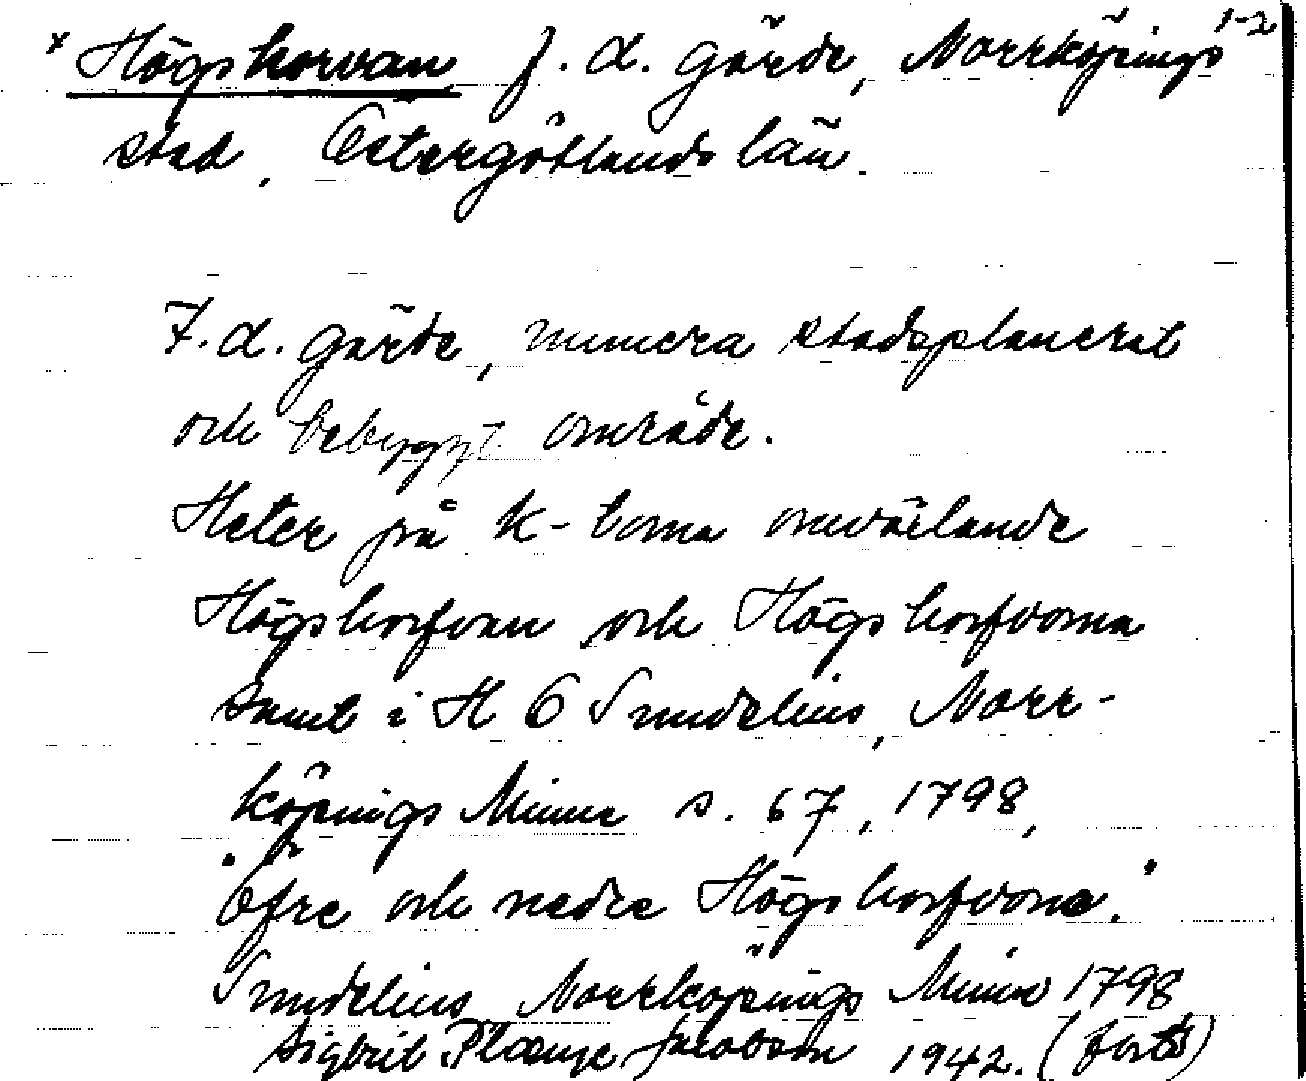 x Högskorvan f. d. gärde, Norrköpings 1-2
stad, Östergötlands län.
F. d. gärde, numera stadsplanerat
och bebyggt område.
Heter på k-torna omväxlande
Högskorfvan och Högskorfvorna
samt i H O Sundelius, Norr-
köpings Minne s. 67, 1798,
"Öfre och nedre Högskorfvorna."
Sundelius Norrköpings Minne 1798
Sigbrit Plænge Jacobson 1942. (forts)